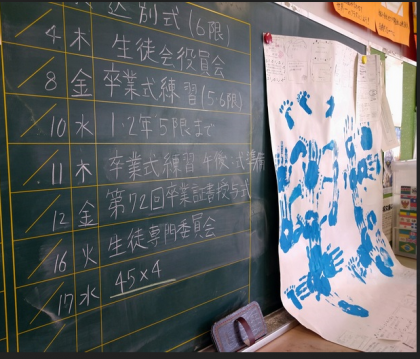 送別式 (6限)
4 木 生徒会役員会
8 金 卒業式練習 (5・6限)
10 水 1・2年5限まで
11 木 卒業式練習 午後:式準備
12 金 第72回卒業証書授与式
16 火 生徒専門委員会
17 水 45×4